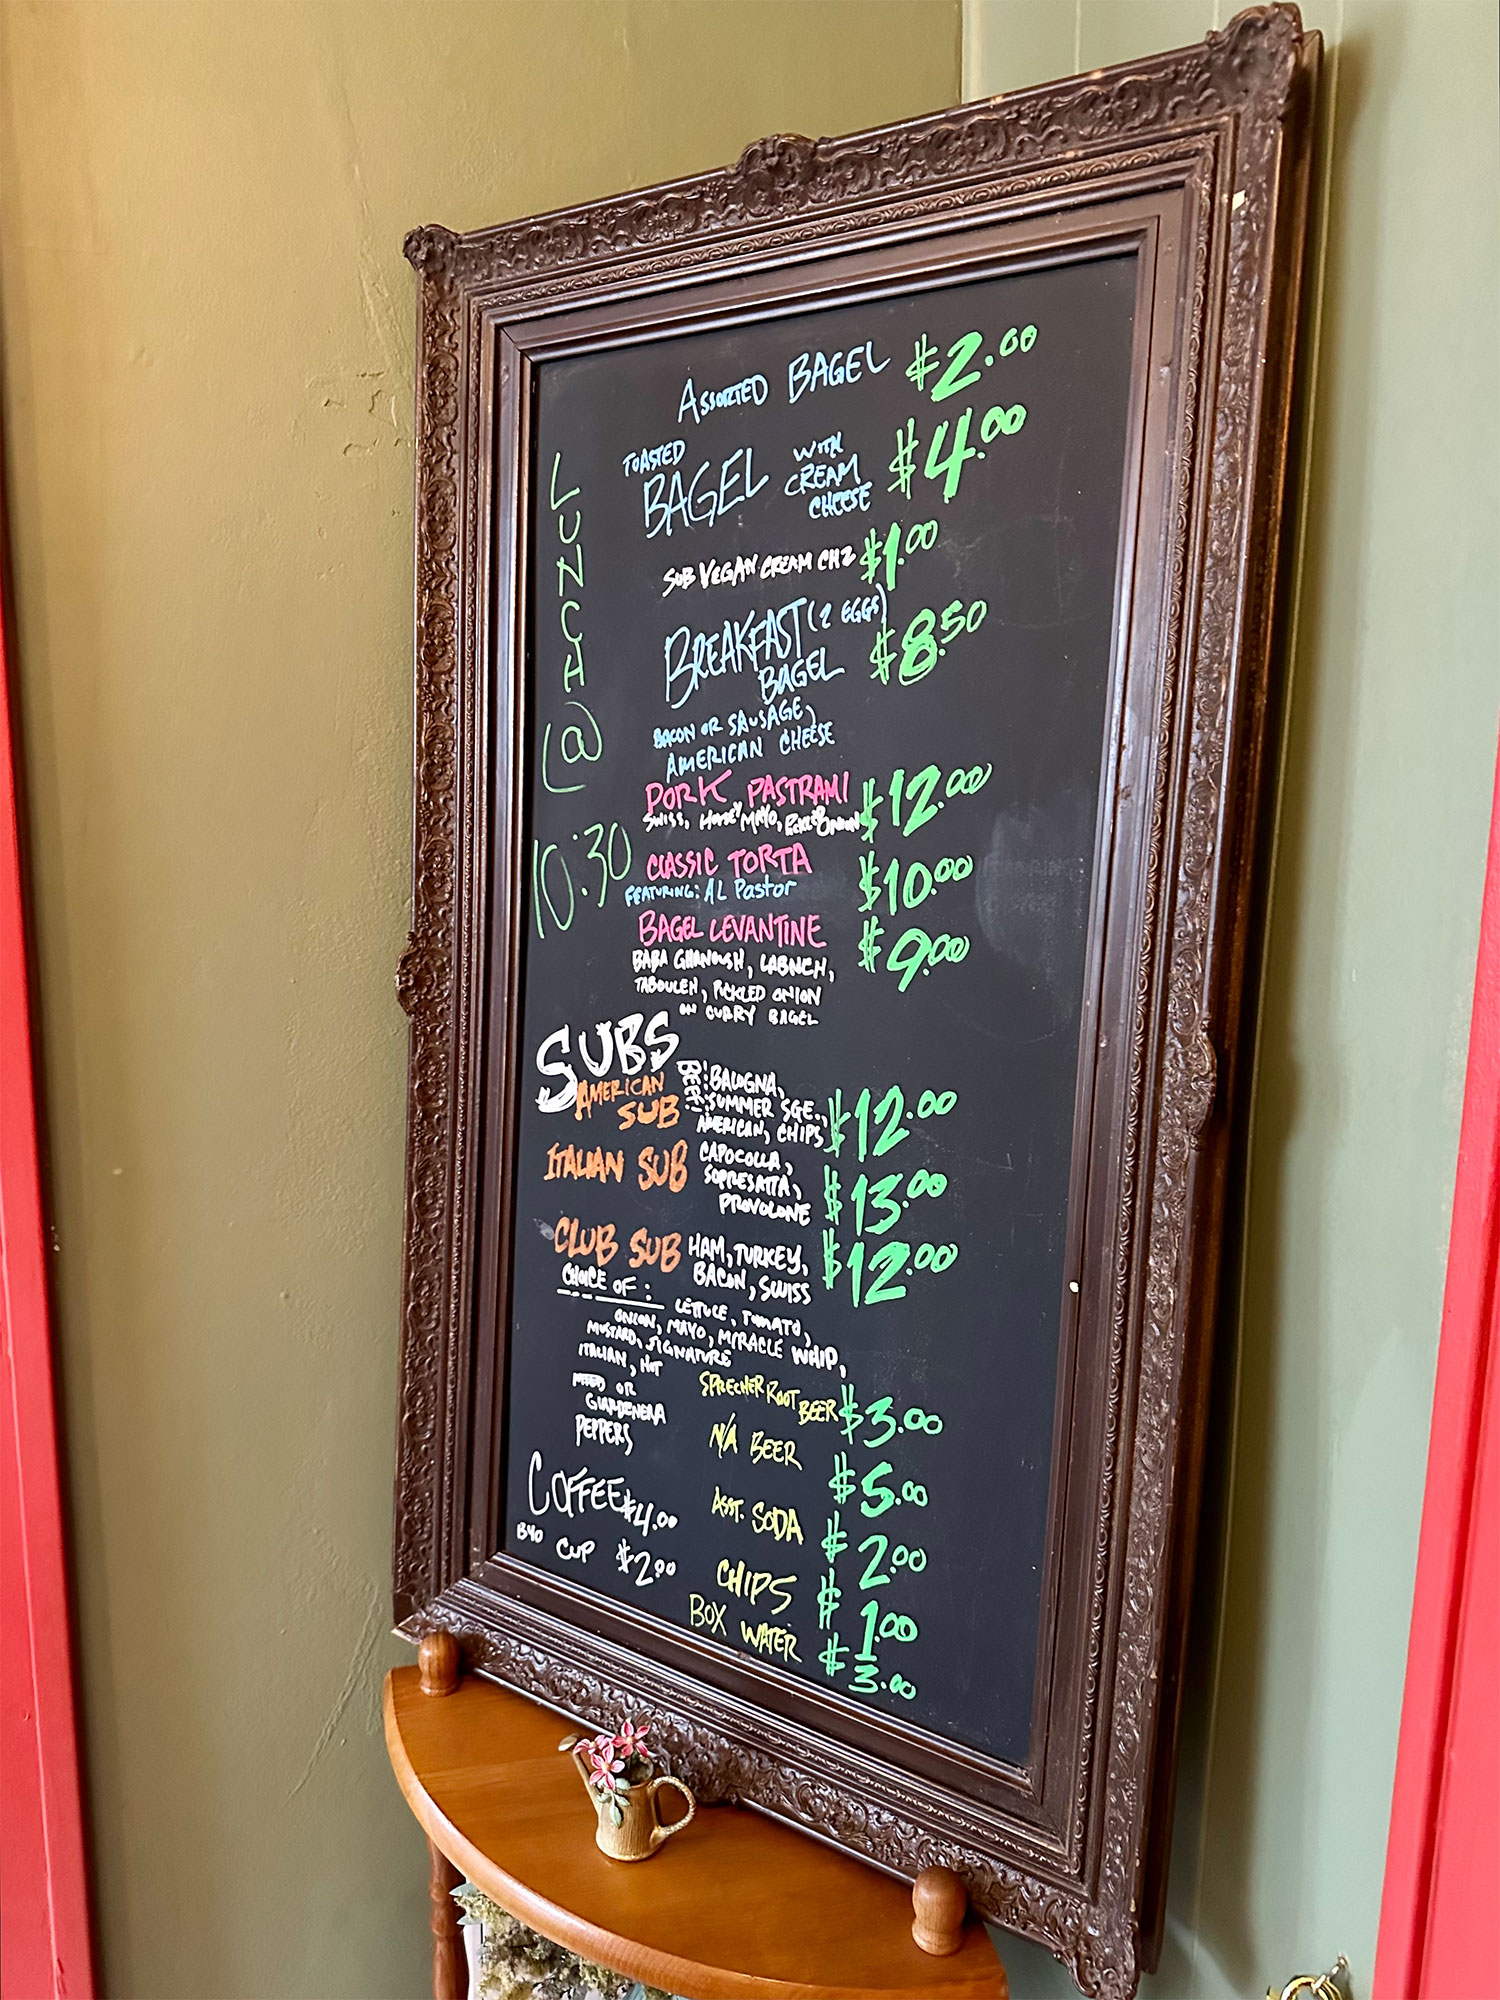 ASSORTED BAGEL $2.00
TOASTED
BAGEL WITH CREAM CHEESE $4.00
SUB VEGAN CREAM CHZ $1.00
BREAKFAST (2 EGGS)
BAGEL $8.50
BACON OR SAUSAGE,
AMERICAN CHEESE
LUNCH @ 10:30
PORK PASTRAMI $12.00
SWISS, HONEY MAYO, PICKLED ONION
CLASSIC TORTA $10.00
FEATURING: AL Pastor
BAGEL LEVANTINE $9.00
BABA GHANOUSH, LABNEH,
TABOULEH, PICKLED ONION
ON CURRY BAGEL
SUBS
AMERICAN SUB BEEF: BALOGNA, SUMMER SGE., AMERICAN, CHIPS $12.00
ITALIAN SUB CAPOCOLLA, SOPRESATTA, PROVOLONE $13.00
CLUB SUB HAM, TURKEY, BACON, SWISS $12.00
CHOICE OF:
LETTUCE, TOMATO,
ONION, MAYO, MIRACLE WHIP,
MUSTARD, SIGNATURE
ITALIAN, HOT
OR
GIARDENERA
PEPPERS
COFFEE $4.00
BYO CUP $2.00
SPRECHER ROOT
BEER $3.00
N/A BEER $5.00
ASST. SODA $2.00
CHIPS $1.00
BOX WATER $3.00